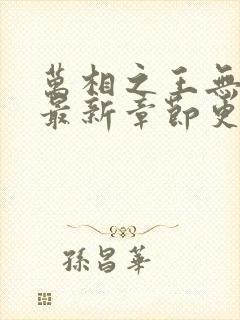 萬相之王無
最新章節更
孫昌華